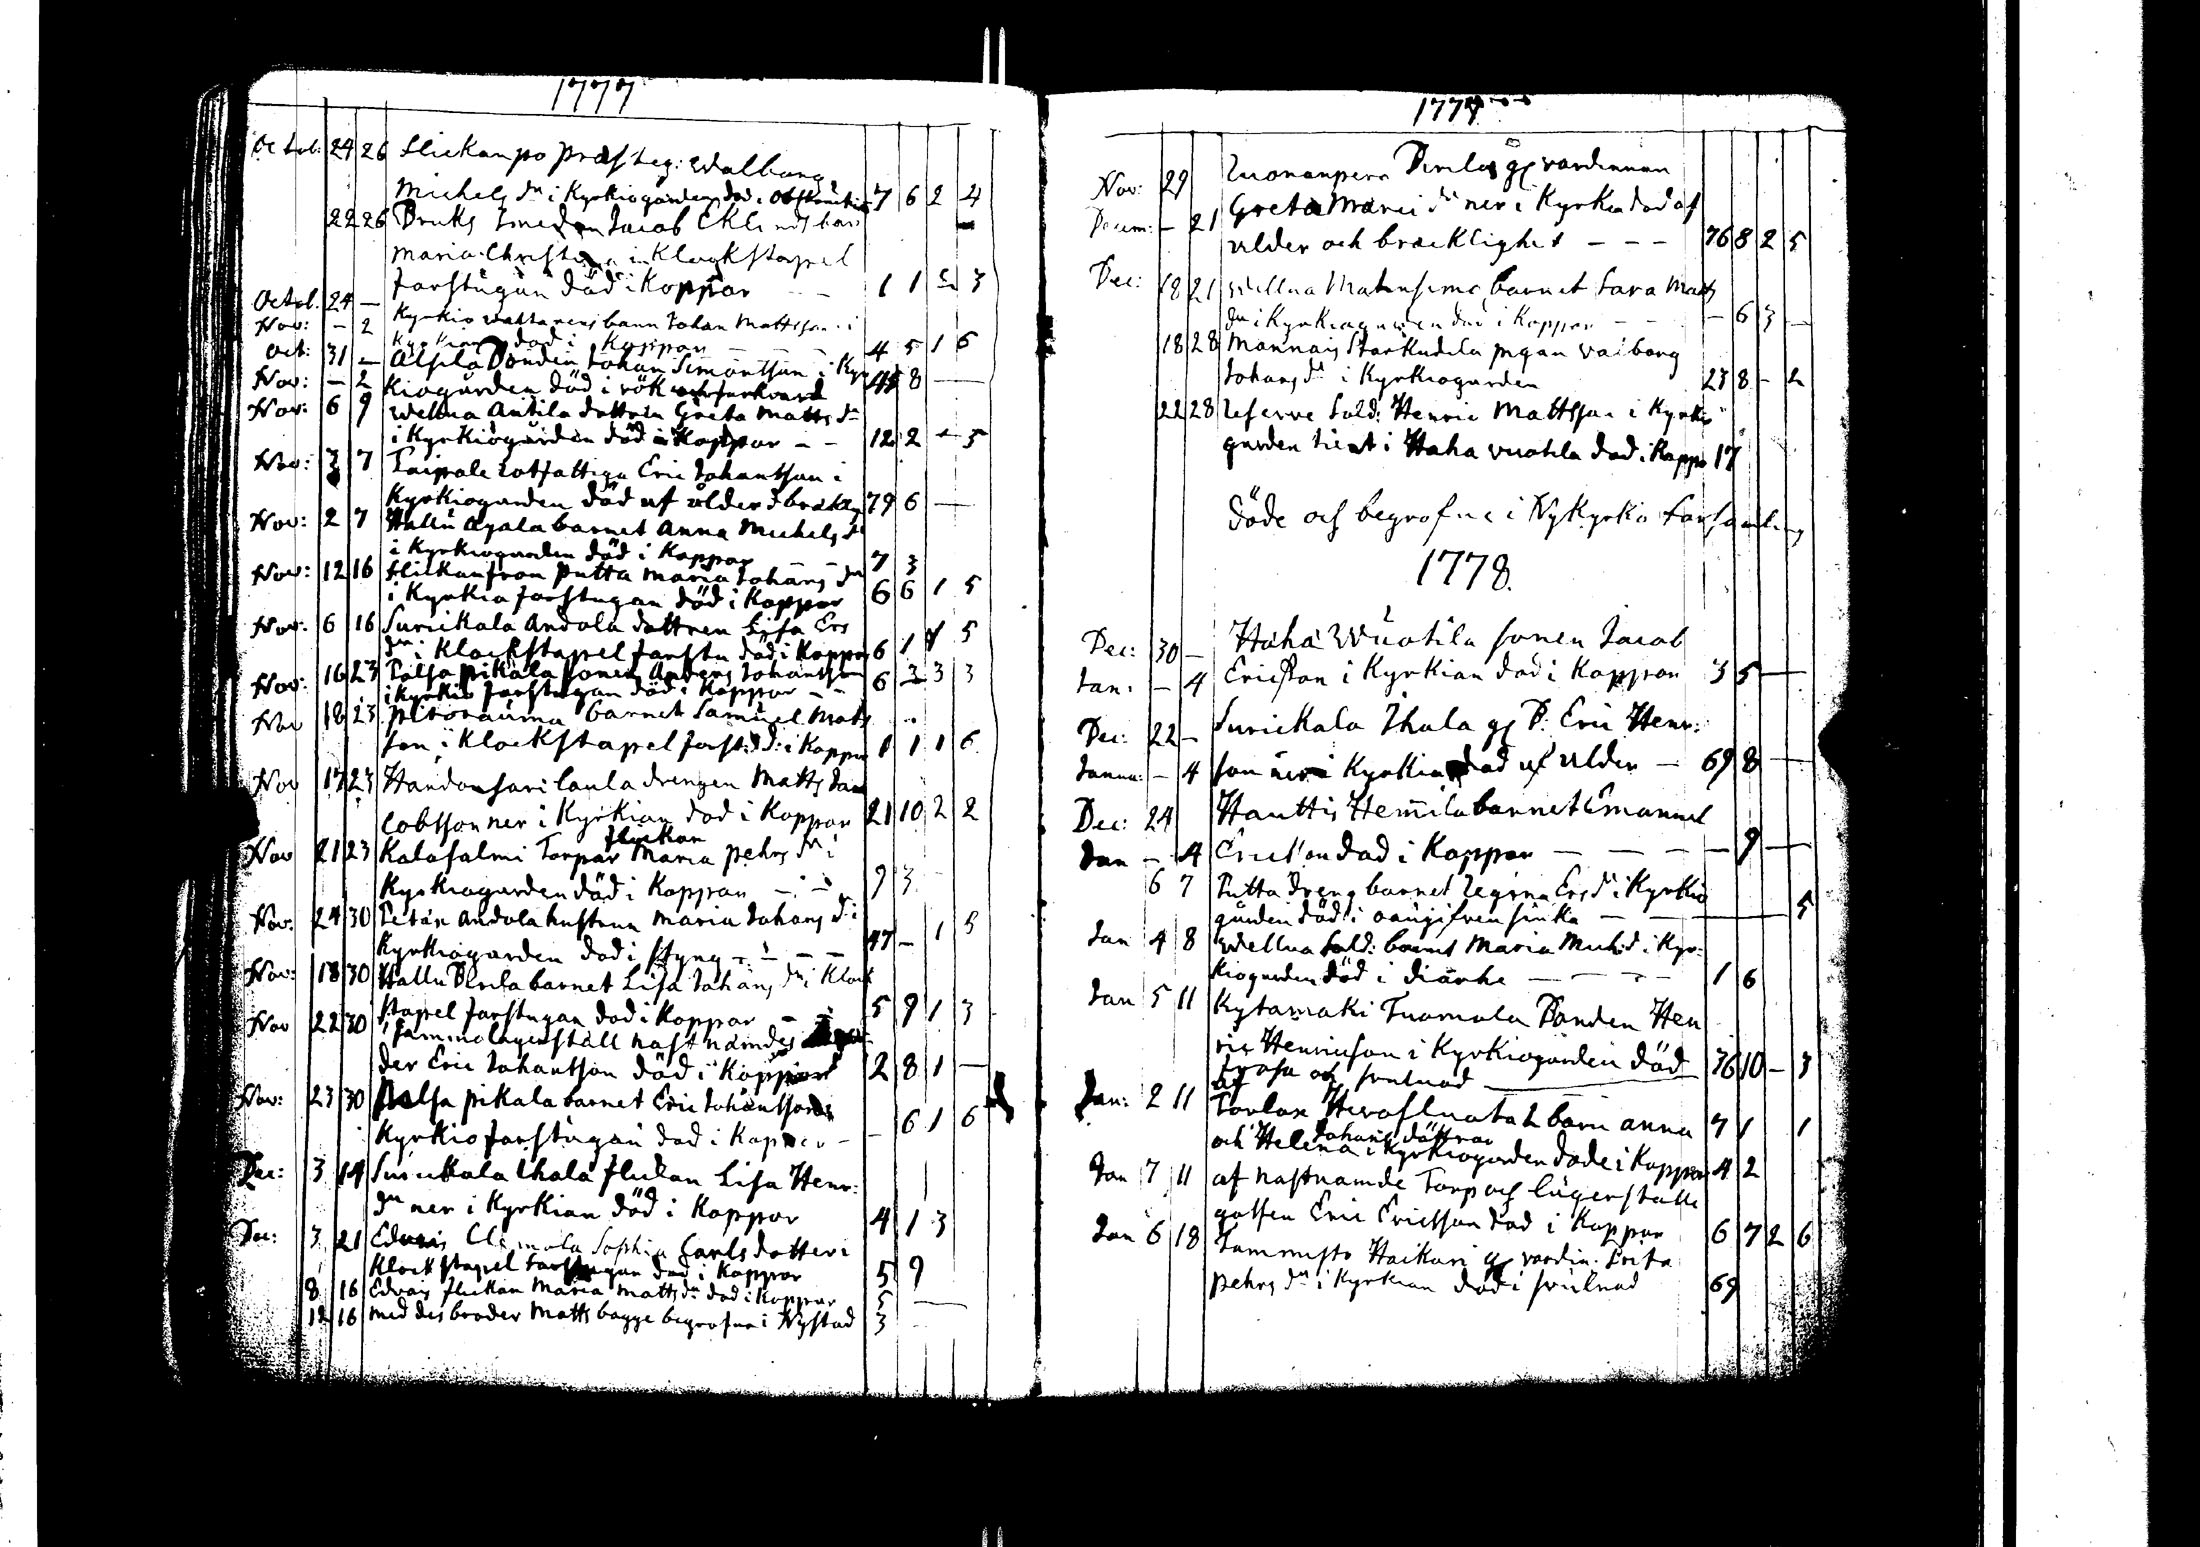 1777
Octob: 24 26 flickan på Prästeg: Walborg
Michels dr i Kyrkiogården död i obstruction 7 6 2 4
22 26 Bruks smeden Jacob Eklunds barn
Maria Christina in Klockstapel
farstugun död i Koppor - - 1 1 3
Octob. 24 - Kyrkio wacktarens barn Johan Mattsson i
Nov: - 2 Kyrkian död i Koppor - - - 4 5 1 6
Oct: 31 - Alsila Bonden Johan Simontson i Kyr
Nov: - 2 kiogården död i rök 8 -
Nov: 6 9 Wellua Antila dottren Greta Matts dr
i Kyrkiogården död i Koppor - - 12 2 - 5
Nov: 3 7 Taipale rotfattiga Eric Johantson i
Kyrkiogården död af ålder 79 6 -
Nov: 2 7 Hallu Ayala barnet Anna Michels dr
i Kyrkiogården död i Koppor - - 7 3
Nov: 12 16 flickan från Putta Maria Johans dr
i Kyrkio farstugan död i Koppor 6 6 1 5
Nov: 6 16 Surickala Andola dottren Lisa Ers
dr i Klockstapel farstu död i Koppor 6 1 5
Nov: 16 23 Palsa pikala sonen Anders Johantsson
i Kyrkio farstugan död i Koppor - - 6 3 3 3
Nov 18 23 barnet Samuel Mats
son i Klockstapel farst: d: i Koppor 1 1 1 6
Nov 17 23 drengen Matts Ja
cobsson ner i Kyrkian död i Koppor 21 10 2 2
flickan
Nov 21 23 Kalasalmi Torpar Maria Pehrs dr i
Kyrkiogården död i Koppor - - 9 3
Nov: 24 30 Andola hustrun Maria Johans dr i
Kyrkiogården död i styng - - - 47 - 1 5
Nov: 18 30 Hallu Perila barnet Lisa Johans dr i Klock
stapel farstugan död i Koppor - - 5 9 1 3
Nov 22 30 i samma lägerställ näst nämdes
der Eric Johantson död i Koppor 2 8 1 -
Nov: 23 30 Palsa pikala barnet Eric Johantsson
Kyrkio farstugan död i Koppor - - 6 1 6
Dec: 3 14 Surickala Uhala flickan Lisa Henr:
dr ner i Kyrkian död i Koppor 4 1 3
Dec: 3 21 Sophia Carls dotter i
Klockstapel farstugan död i Koppor 5 9
8 16 flickan Maria Matts dr död i Koppor 5 -
12 16 med des broder Matts bagge begrofne i Nystad 3
1777
Nov: 29 Perilas gl värdinnan
Greta Marci dr ner i Kyrkia död af
Decem: - 21 ålder och bräcklighet - - - 76 8 2 5
Dec: 18 21 Wellua barnet Sara Matts
dr i Kyrkiogården död i Koppor - - - 6 3 -
18 28 Mannais pigan Valborg
Johans dr i Kyrkiogården 23 8 - 2
22 28 reserve Sold: Henric Mattsson i Kyrkio
gården tient i Haha vuotila död i Koppor 17
Döde och begrofne i Nykyrko Forsamling
1778.
Dec: 30 - Haha Wuotila sonen Jacob
Jan: - 4 Ericsson i Kyrkian död i Koppor 3 5 -
Dec: 22 - Surickala Ihala gl B: Eric Henr:
Janua: - 4 son ner i Kyrkian död af ålder - 69 8 -
Dec: 24 Hauttis Hemmilä barnet Emanuel
Jan - 4 Ericsson död i Koppor - - - - 9 -
6 7 Putta dreng barnet Regina Ers dr i Kyrkio
gården död i oangifven siuka - - 5
Jan 4 8 Wellua Sold: barnet Maria Mich: d i Kyr-
kiogården död i diarrhe - - - - 1 6
Jan 5 11 Kytamaki Tuomola Bonden Hen
ric Henricsson i Kyrkiogården död 36 10 - 3
af frosa och svulnad
Jan: 2 11 2 barn Anna 7 1 1
Johans döttrar
och Helena i Kyrkiogården döde i Koppor 4 2
Jan 7 11 af nastnamde Torp och lägerställe
gossen Eric Ericsson död i Koppor 6 7 2 6
Jan 6 18 Tammisto Haikari gl vardin: Brita
Pehrs dr i Kyrkian död i svulnad 69